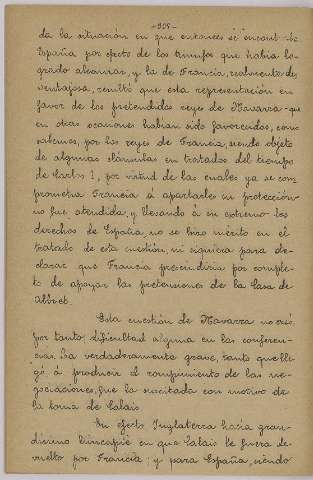 -308-
da la situación en que entonces se encontraba
España por efecto de los triunfos que había lo-
grado alcanzar, y la de Francia, realmente des-
ventajosa, resultó que esta representación en
favor de los pretendidos reyes de Navarra - que
en otras ocasiones habían sido favorecidos, como
sabemos, por los reyes de Francia, siendo objeto
de algunas cláusulas en tratados del tiempo
de Carlos I, por virtud de las cuales ya se com-
prometía Francia á apartarles su protección -
no fue atendida, y llevando á su extremo los
derechos de España, no se hizo mérito en el
tratado de esta cuestión, ni siquiera para de-
clarar que Francia prescindiría por comple-
to de apoyar las pretensiones de la Casa de
Albret.
Esta cuestión de Navarra no creó
por tanto dificultad alguna en las conferen-
cias. La verdaderamente grave, tanto que lle-
gó á producir el rompimiento de las ne-
gociaciones, fue la suscitada con motivo de
la toma de Calais.
En efecto Inglaterra hacía gran-
dísimo hincapié en que Calais le fuera de-
vuelto por Francia; y para España, siendo